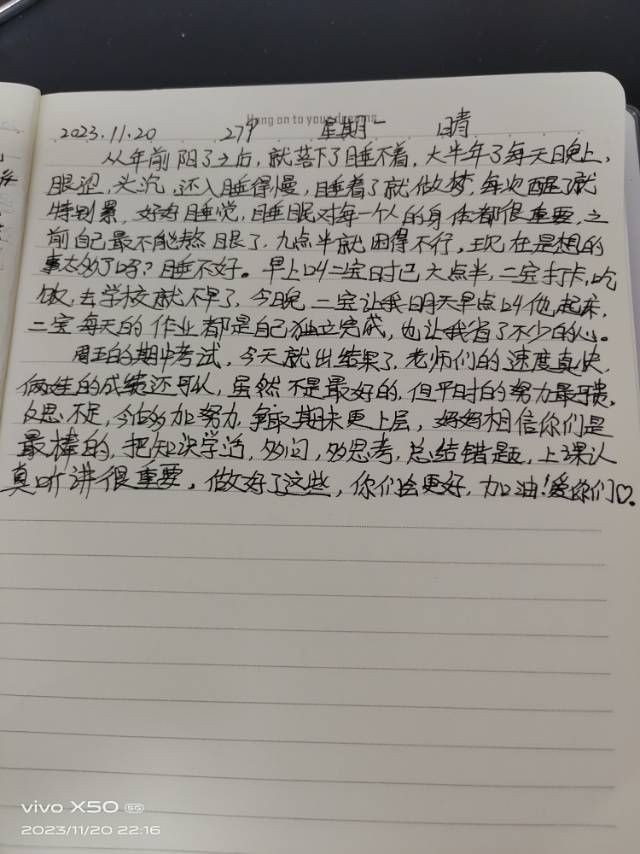 Hang on to your dreams
2023.11.20 279 星期一 晴
从年前阳了之后,就落下了睡不着,大半年了每天晚上,
眼涩,头沉,还入睡得慢,睡着了就做梦,每次醒了就
特别累,好好睡觉,睡眠对每一个人的身体都很重要,之
前自己最不能熬眼了,九点半就困得不行,现在是想的
事太多了吗?睡不好。早上叫二宝时已六点半,二宝打卡,吃
饭,去学校就不早了,今晚二宝让我明天早点叫他起床,
二宝每天的作业都是自己独立完成,也让我省了不少的心。
周五的期中考试,今天就出结果了,老师们的速度真快,
俩娃的成绩还可以,虽然不是最好的,但平时的努力最可贵,
反思不足,今后多加努力,争取期末更上层,妈妈相信你们是
最棒的,把知识学活,多问,多思考,总结错题,上课认
真听讲很重要,做好了这些,你们会更好,加油!爱你们♡。
vivo X50 5G
2023/11/20 22:16